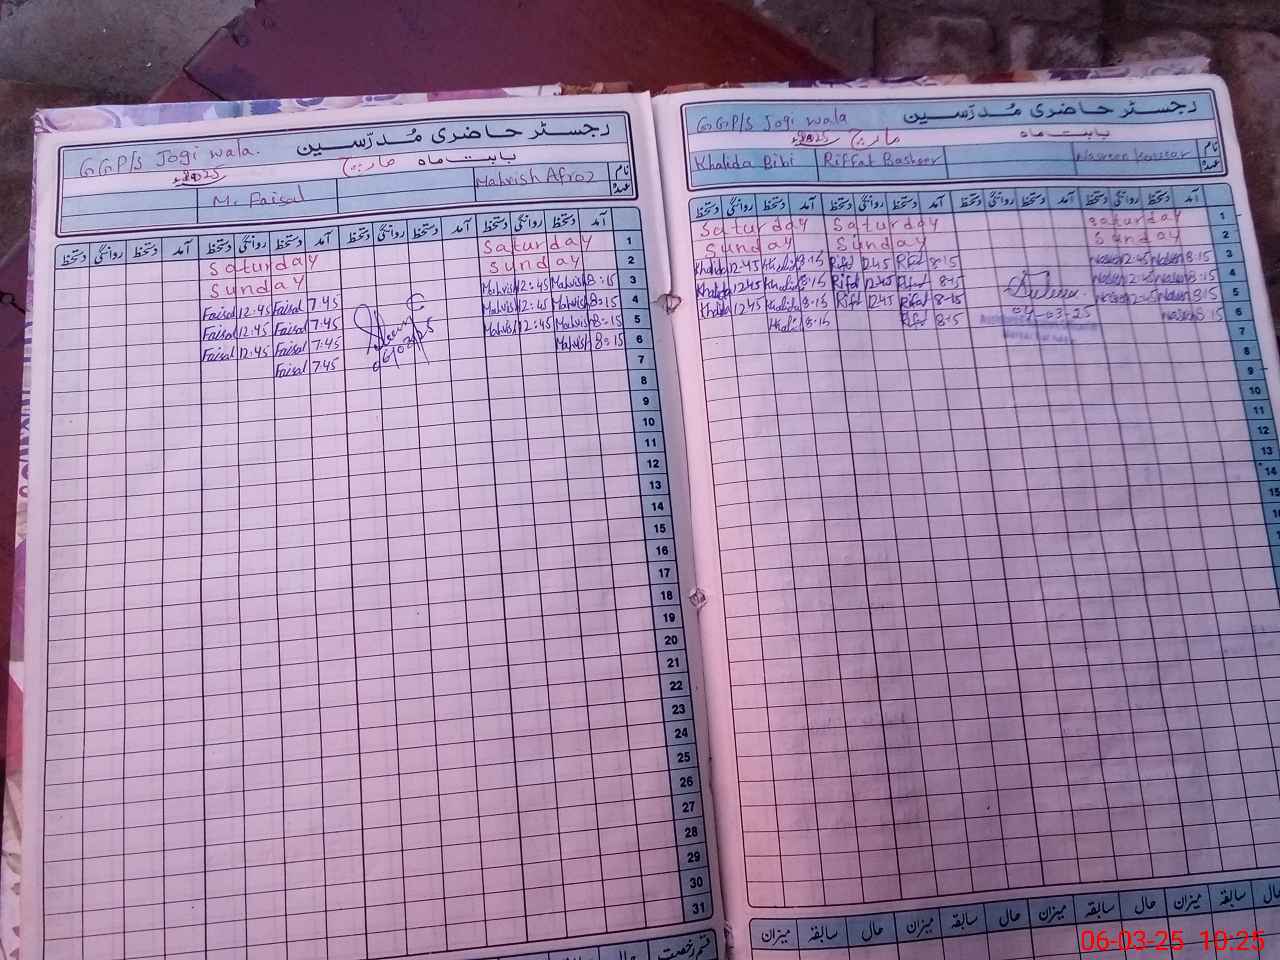 رجسٹر حاضری مدرّسین
GGP/S Jogi wala.
بابت ماہ مارچ 2025ء
نام عہدہ
Mahvish Afroz
M. Faisal
آمد دستخط روانگی دستخط آمد دستخط روانگی دستخط آمد دستخط روانگی دستخط آمد دستخط روانگی دستخط
1 Saturday Saturday
2 Sunday Sunday
3 8:15 Mahvish 12:45 Mahvish 7:45 Faisal 12:45 Faisal
4 8:15 Mahvish 12:45 Mahvish 7:45 Faisal 12:45 Faisal
5 8:15 Mahvish 12:45 Mahvish 7:45 Faisal 12:45 Faisal
6 8:15 Mahvish 7:45 Faisal
7
8
9
10
11
12
13
14
15
16
17
18
19
20
21
22
23
24
25
26
27
28
29
30
31
قسم رخصت حال سابقہ
رجسٹر حاضری مدرّسین
GGP/S Jogi wala
بابت ماہ مارچ 2025ء
نام عہدہ
Nasreen Kousar
Riffat Basheer
Khalida Bibi
آمد دستخط روانگی دستخط آمد دستخط روانگی دستخط آمد دستخط روانگی دستخط آمد دستخط روانگی دستخط
1 Saturday Saturday Saturday
2 Sunday Sunday Sunday
3 8:15 Nasreen 12:45 Nasreen 8:15 Riffat 12:45 Riffat 8:15 Khalida 12:45 Khalida
4 8:15 Nasreen 12:45 Nasreen 8:15 Riffat 12:45 Riffat 8:15 Khalida 12:45 Khalida
5 8:15 Nasreen 12:45 Nasreen 8:15 Riffat 12:45 Riffat 8:15 Khalida 12:45 Khalida
6 8:15 Nasreen 8:15 Riffat 8:15 Khalida
04-03-25
7
8
9
10
11
12
13
14
15
حال سابقہ میزان حال سابقہ میزان حال سابقہ میزان حال سابقہ میزان
06-03-25 10:25